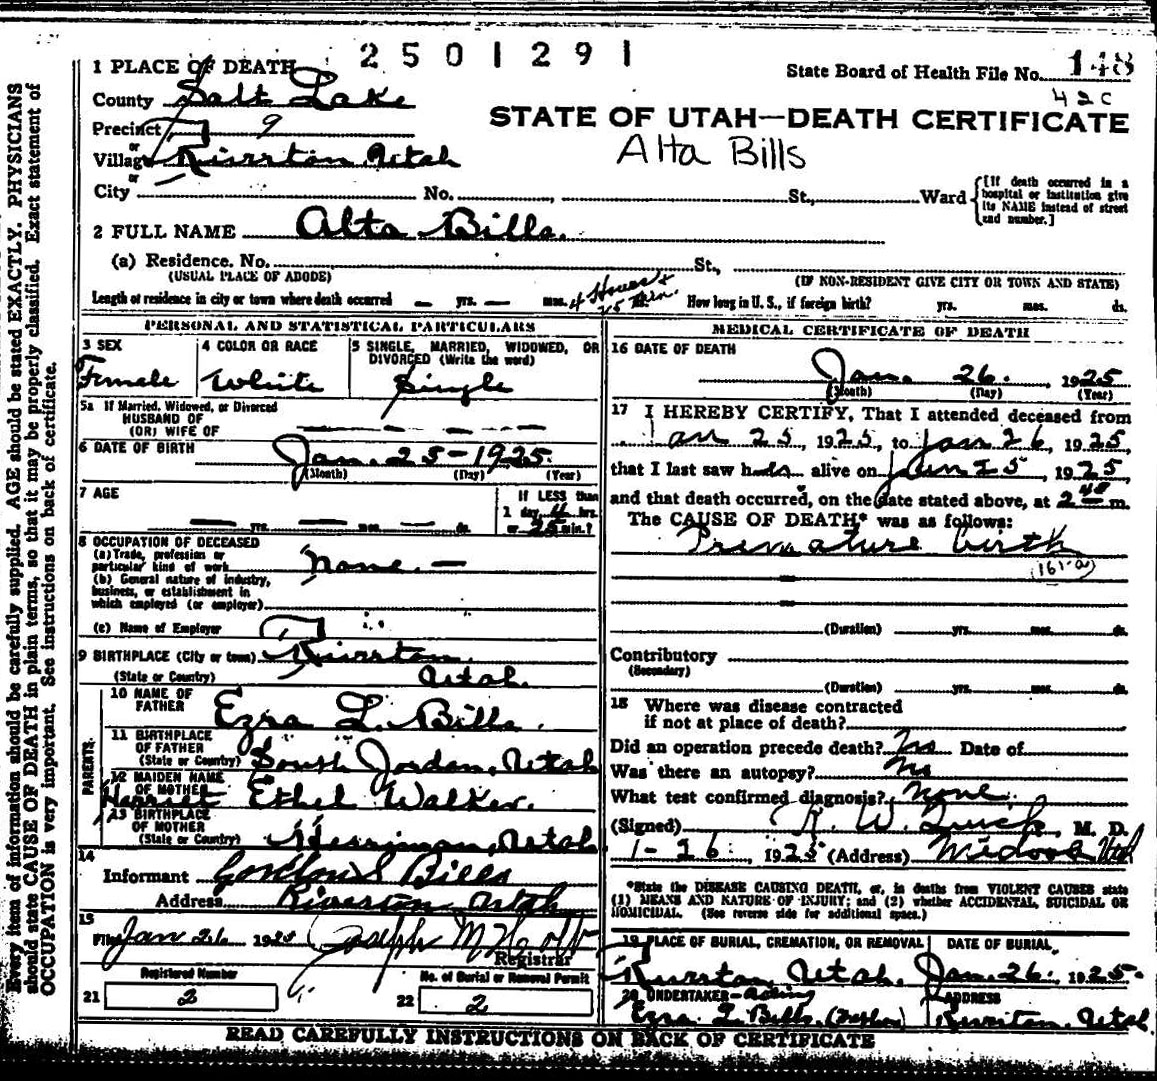 2501291
1 PLACE OF DEATH
State Board of Health File No. 148
42c
County Salt Lake
STATE OF UTAH—DEATH CERTIFICATE
Precinct 9
or
Alta Bills
Village Riverton Utah
or
City No. , St., Ward
[If death occurred in a
hospital or institution give
its NAME instead of street
and number.]
2 FULL NAME Alta Bills.
(a) Residence. No. St.,
(USUAL PLACE OF ABODE) (IF NON-RESIDENT GIVE CITY OR TOWN AND STATE)
Length of residence in city or town where death occurred — yrs. — mos. 4 Hours & 25 Min. How long in U. S., if foreign birth? yrs. mos. ds.
PERSONAL AND STATISTICAL PARTICULARS
3 SEX
Female
4 COLOR OR RACE
White
5 SINGLE, MARRIED, WIDOWED, OR
DIVORCED (Write the word)
Single
5a If Married, Widowed, or Divorced
HUSBAND OF
(OR) WIFE OF — — — —
6 DATE OF BIRTH Jan. 25-1925.
(Month) (Day) (Year)
7 AGE
— yrs. — mos. — ds.
If LESS than
1 day, 4 hrs.
or 25 min.?
8 OCCUPATION OF DECEASED
(a) Trade, profession or
particular kind of work None. —
(b) General nature of industry,
business, or establishment in
which employed (or employer)
(c) Name of Employer
9 BIRTHPLACE (City or town) Riverton.
(State or Country) Utah.
PARENTS
10 NAME OF
FATHER Ezra L. Bills.
11 BIRTHPLACE
OF FATHER
(State or Country) South Jordan, Utah
12 MAIDEN NAME
OF MOTHER
Harriet Ethel Walker.
13 BIRTHPLACE
OF MOTHER
(State or Country) Herriman, Utah
14
Informant Gordon S Bills
Address Riverton Utah
15
Filed Jan 26 1925 Joseph M
Registrar
Registered Number
21 2
No. of Burial or Removal Permit
22 2
MEDICAL CERTIFICATE OF DEATH
16 DATE OF DEATH
Jan. 26. , 1925
(Month) (Day) (Year)
17 I HEREBY CERTIFY, That I attended deceased from
Jan 25, 1925, to Jan 26, 1925,
that I last saw her alive on Jan 25, 1925,
and that death occurred, on the date stated above, at 2 40 m.
The CAUSE OF DEATH* was as follows:
Premature birth
(161-a)
(Duration) yrs. mos. ds.
Contributory
(Secondary)
(Duration) yrs. mos. ds.
18 Where was disease contracted
if not at place of death?
Did an operation precede death? No Date of
Was there an autopsy? No
What test confirmed diagnosis? None.
(Signed) W. , M. D.
1-26, 1925 (Address) Midvale Utah
*State the DISEASE CAUSING DEATH, or, in deaths from VIOLENT CAUSES state
(1) MEANS AND NATURE OF INJURY; and (2) whether ACCIDENTAL, SUICIDAL OR
HOMICIDAL. (See reverse side for additional space.)
19 PLACE OF BURIAL, CREMATION, OR REMOVAL
Riverton, Utah.
DATE OF BURIAL
Jan. 26., 1925.
20 UNDERTAKER-Acting
Ezra L Bills. (Father)
ADDRESS
Riverton. Utah.
READ CAREFULLY INSTRUCTIONS ON BACK OF CERTIFICATE
Every item of information should be carefully supplied. AGE should be stated EXACTLY. PHYSICIANS
should state CAUSE OF DEATH in plain terms, so that it may be properly classified. Exact statement of
OCCUPATION is very important. See instructions on back of certificate.